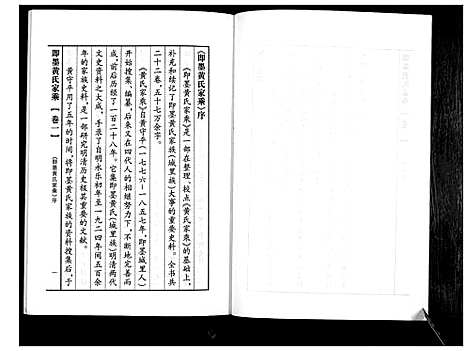 《即墨黄氏家乘》序
《即墨黄氏家乘》是一部在整理、校点《黄氏家乘》的基础上，
补充和续记了即墨黄氏家族（城里族）大事的重要史料。全书共
二十二卷，五十七万余字。
《黄氏家乘》自黄守平（一七七六－一八五七年，即墨城里人）
开始搜集、编纂，后来又在四代人的相继努力下，不断地完善而
成，前后历经了一百二十八年。它集即墨黄氏（城里族）明清两代
文史资料之大成，手录了自明永乐初年至一九二四年间五百余
年的家族史料，是一部研究明清历史极其重要的文献。
黄守平用了五年的时间，将即墨黄氏家族的资料搜集后，于
即墨黄氏家乘【卷一】
《即墨黄氏家乘》序
一